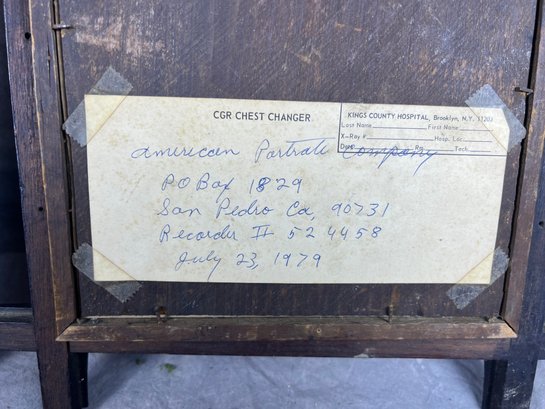 CGR CHEST CHANGER
KINGS COUNTY HOSPITAL, Brooklyn, N.Y. 11203
Last Name First Name
X-Ray # Hosp. Loc.
Date Rm Tech.
American Portrait Company
PO Box 1829
San Pedro Ca, 90731
Recorder II 52 4458
July 23, 1979